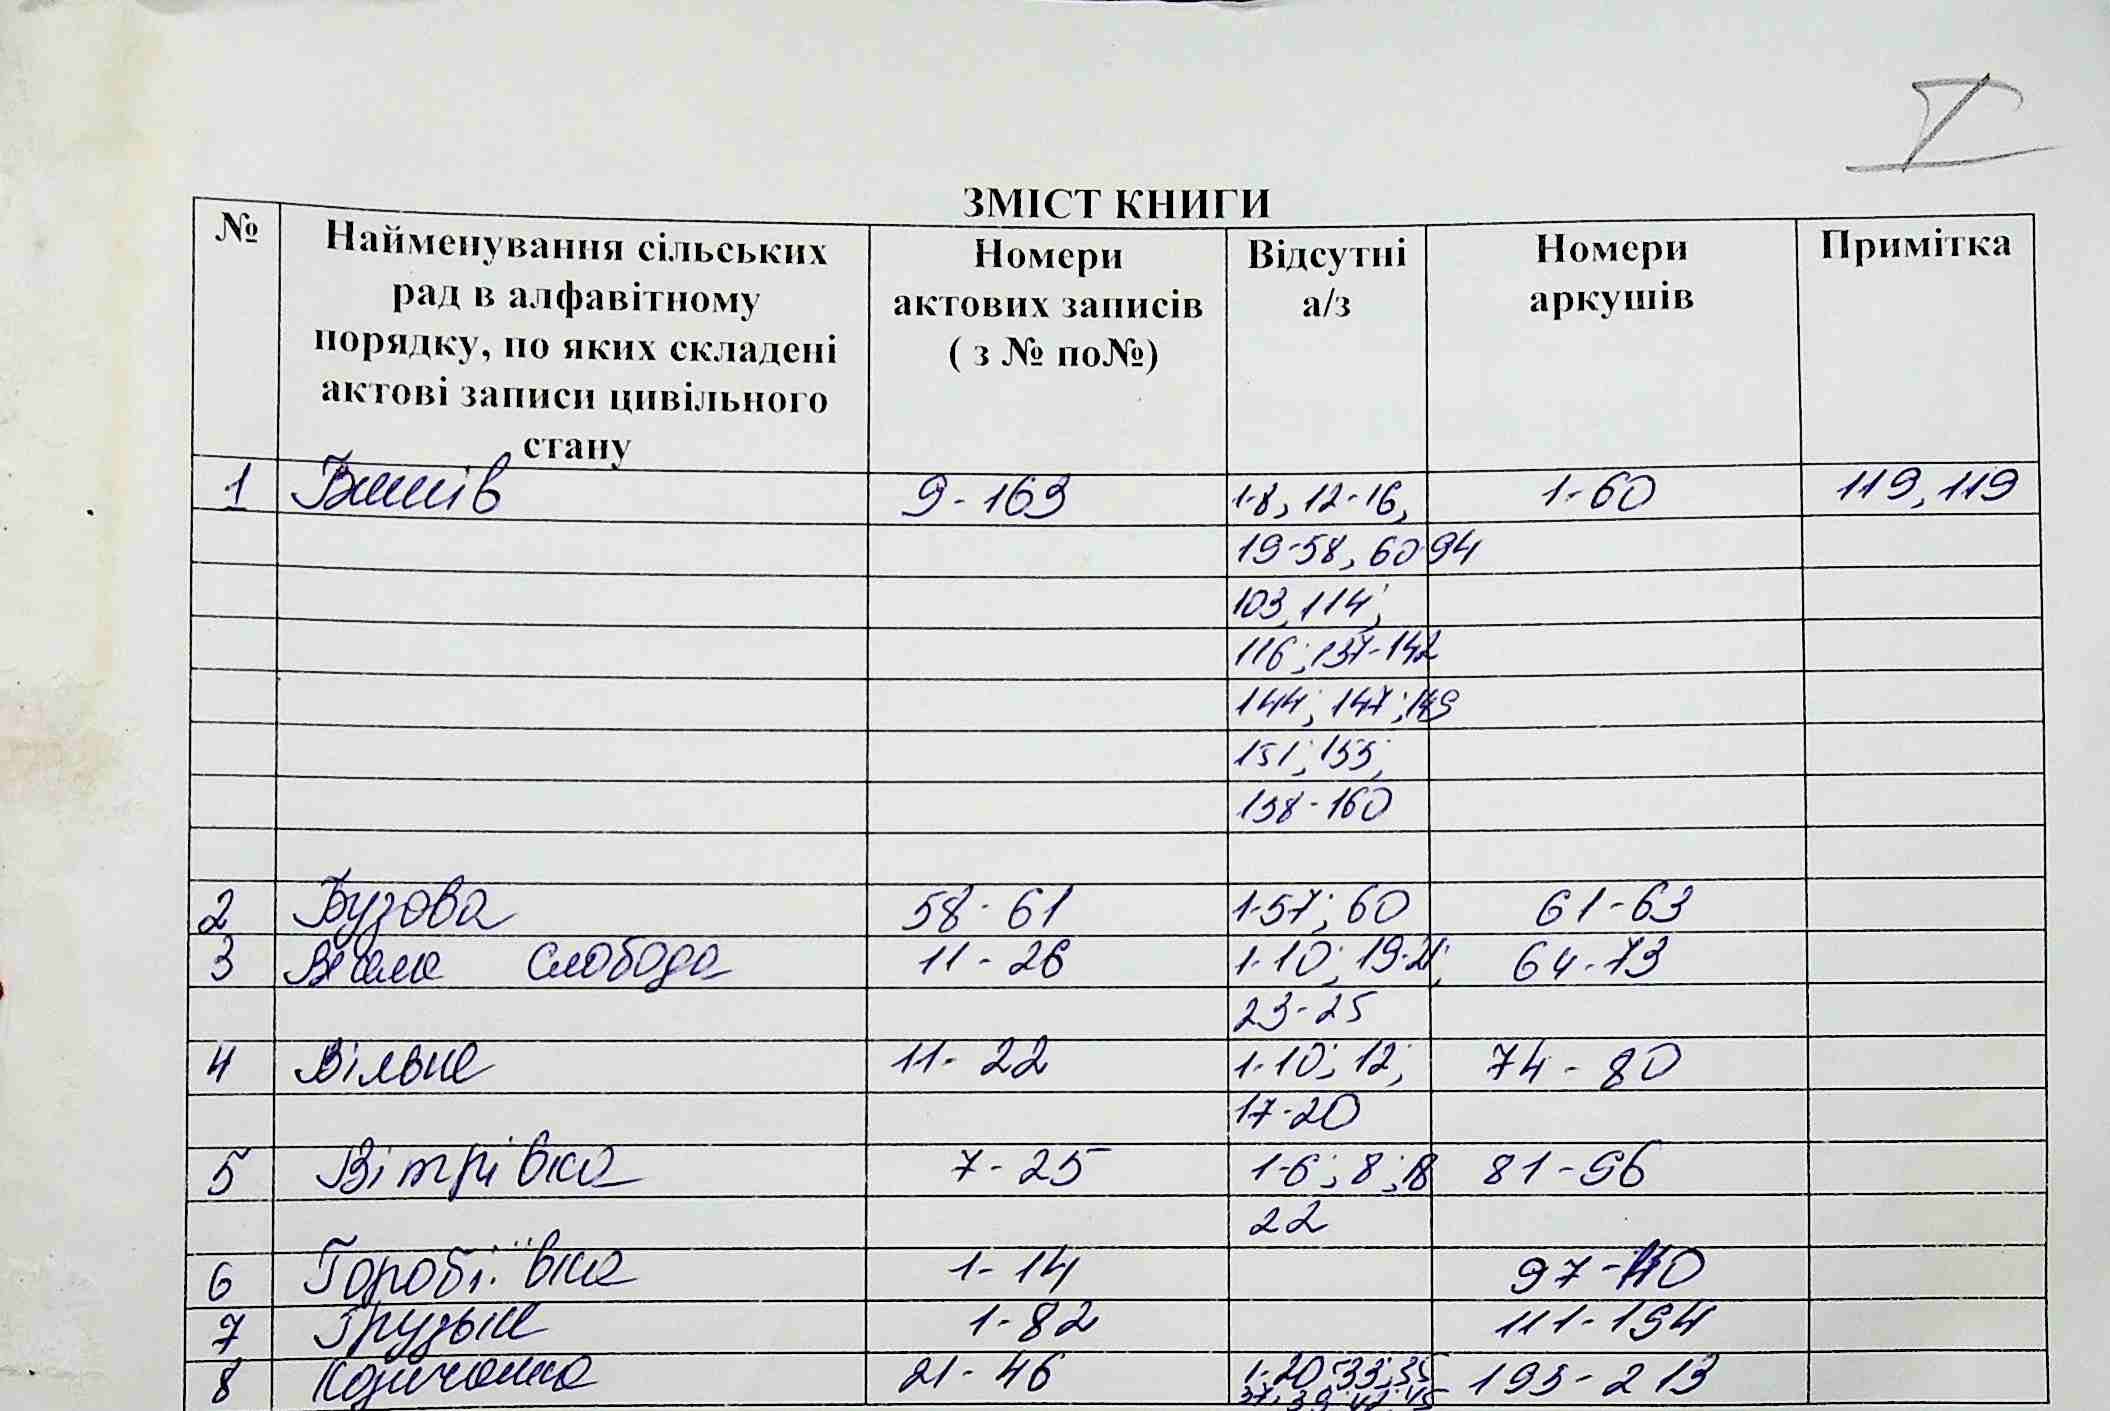 V
ЗМІСТ КНИГИ
№ Найменування сільських рад в алфавітному порядку, по яких складені актові записи цивільного стану Номери актових записів ( з № по№) Відсутні а/з Номери аркушів Примітка
1 Бишів 9-163 1-8, 12-16, 1-60 119, 119
19-58, 60-94
103, 114;
116; 137-142
144; 147; 149
151; 155;
158-160
2 Бузова 58-61 1-57; 60 61-63
3 Весела Слобода 11-26 1-10; 19-21; 64-73
23-25
4 Вільне 11-22 1-10; 12; 74-80
17-20
5 Вітрівка 7-25 1-6; 8; 18 81-96
22
6 Горобіївка 1-14 97-110
7 Грузьке 1-82 111-194
8 Козичанка 21-46 1-20 33; 35 195-213
37; 39; 42; 45